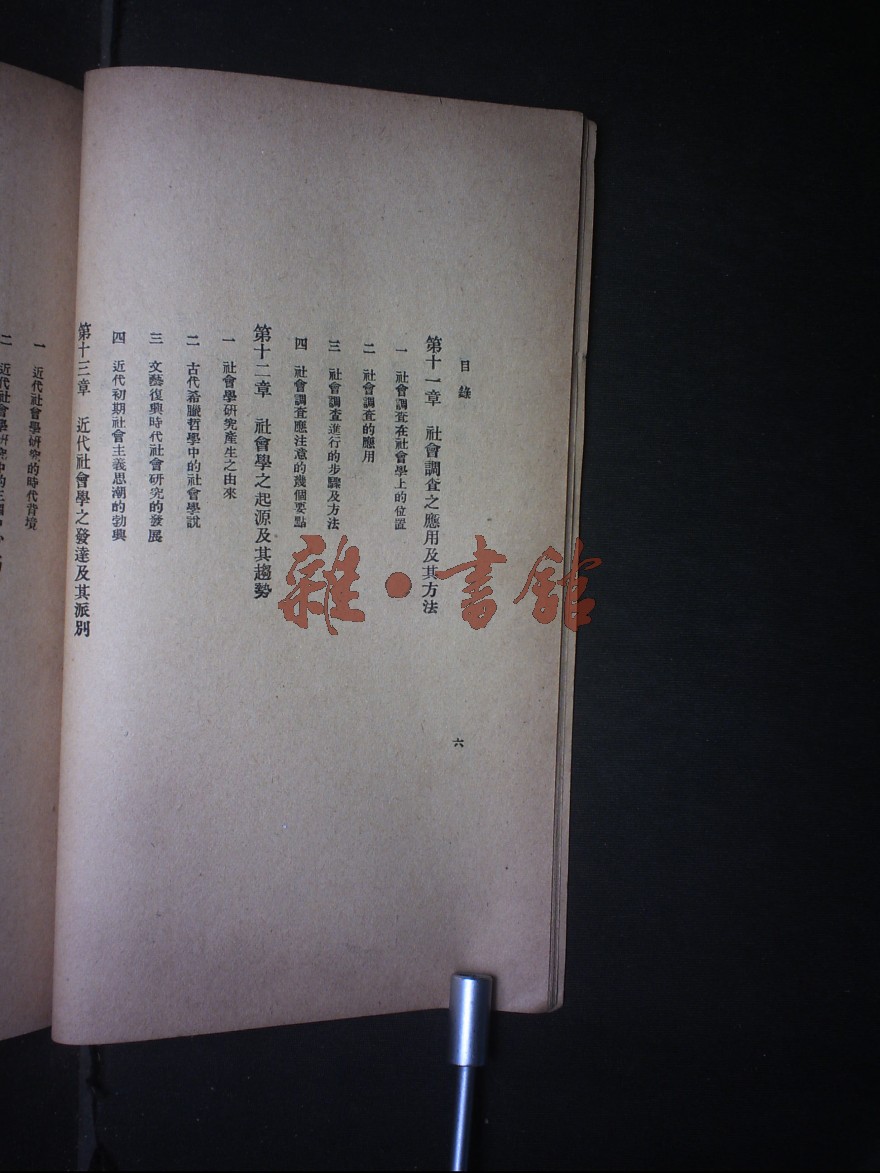 目錄
六
第十一章　社會調查之應用及其方法
一　社會調查在社會學上的位置
二　社會調查的應用
三　社會調查進行的步驟及方法
四　社會調查應注意的幾個要點
第十二章　社會學之起源及其趨勢
一　社會學研究產生之由來
二　古代希臘哲學中的社會學說
三　文藝復興時代社會研究的發展
四　近代初期社會主義思潮的勃興
第十三章　近代社會學之發達及其派別
一　近代社會學研究的時代背境
二　近代社會學研究中的三個中心
雜·書館